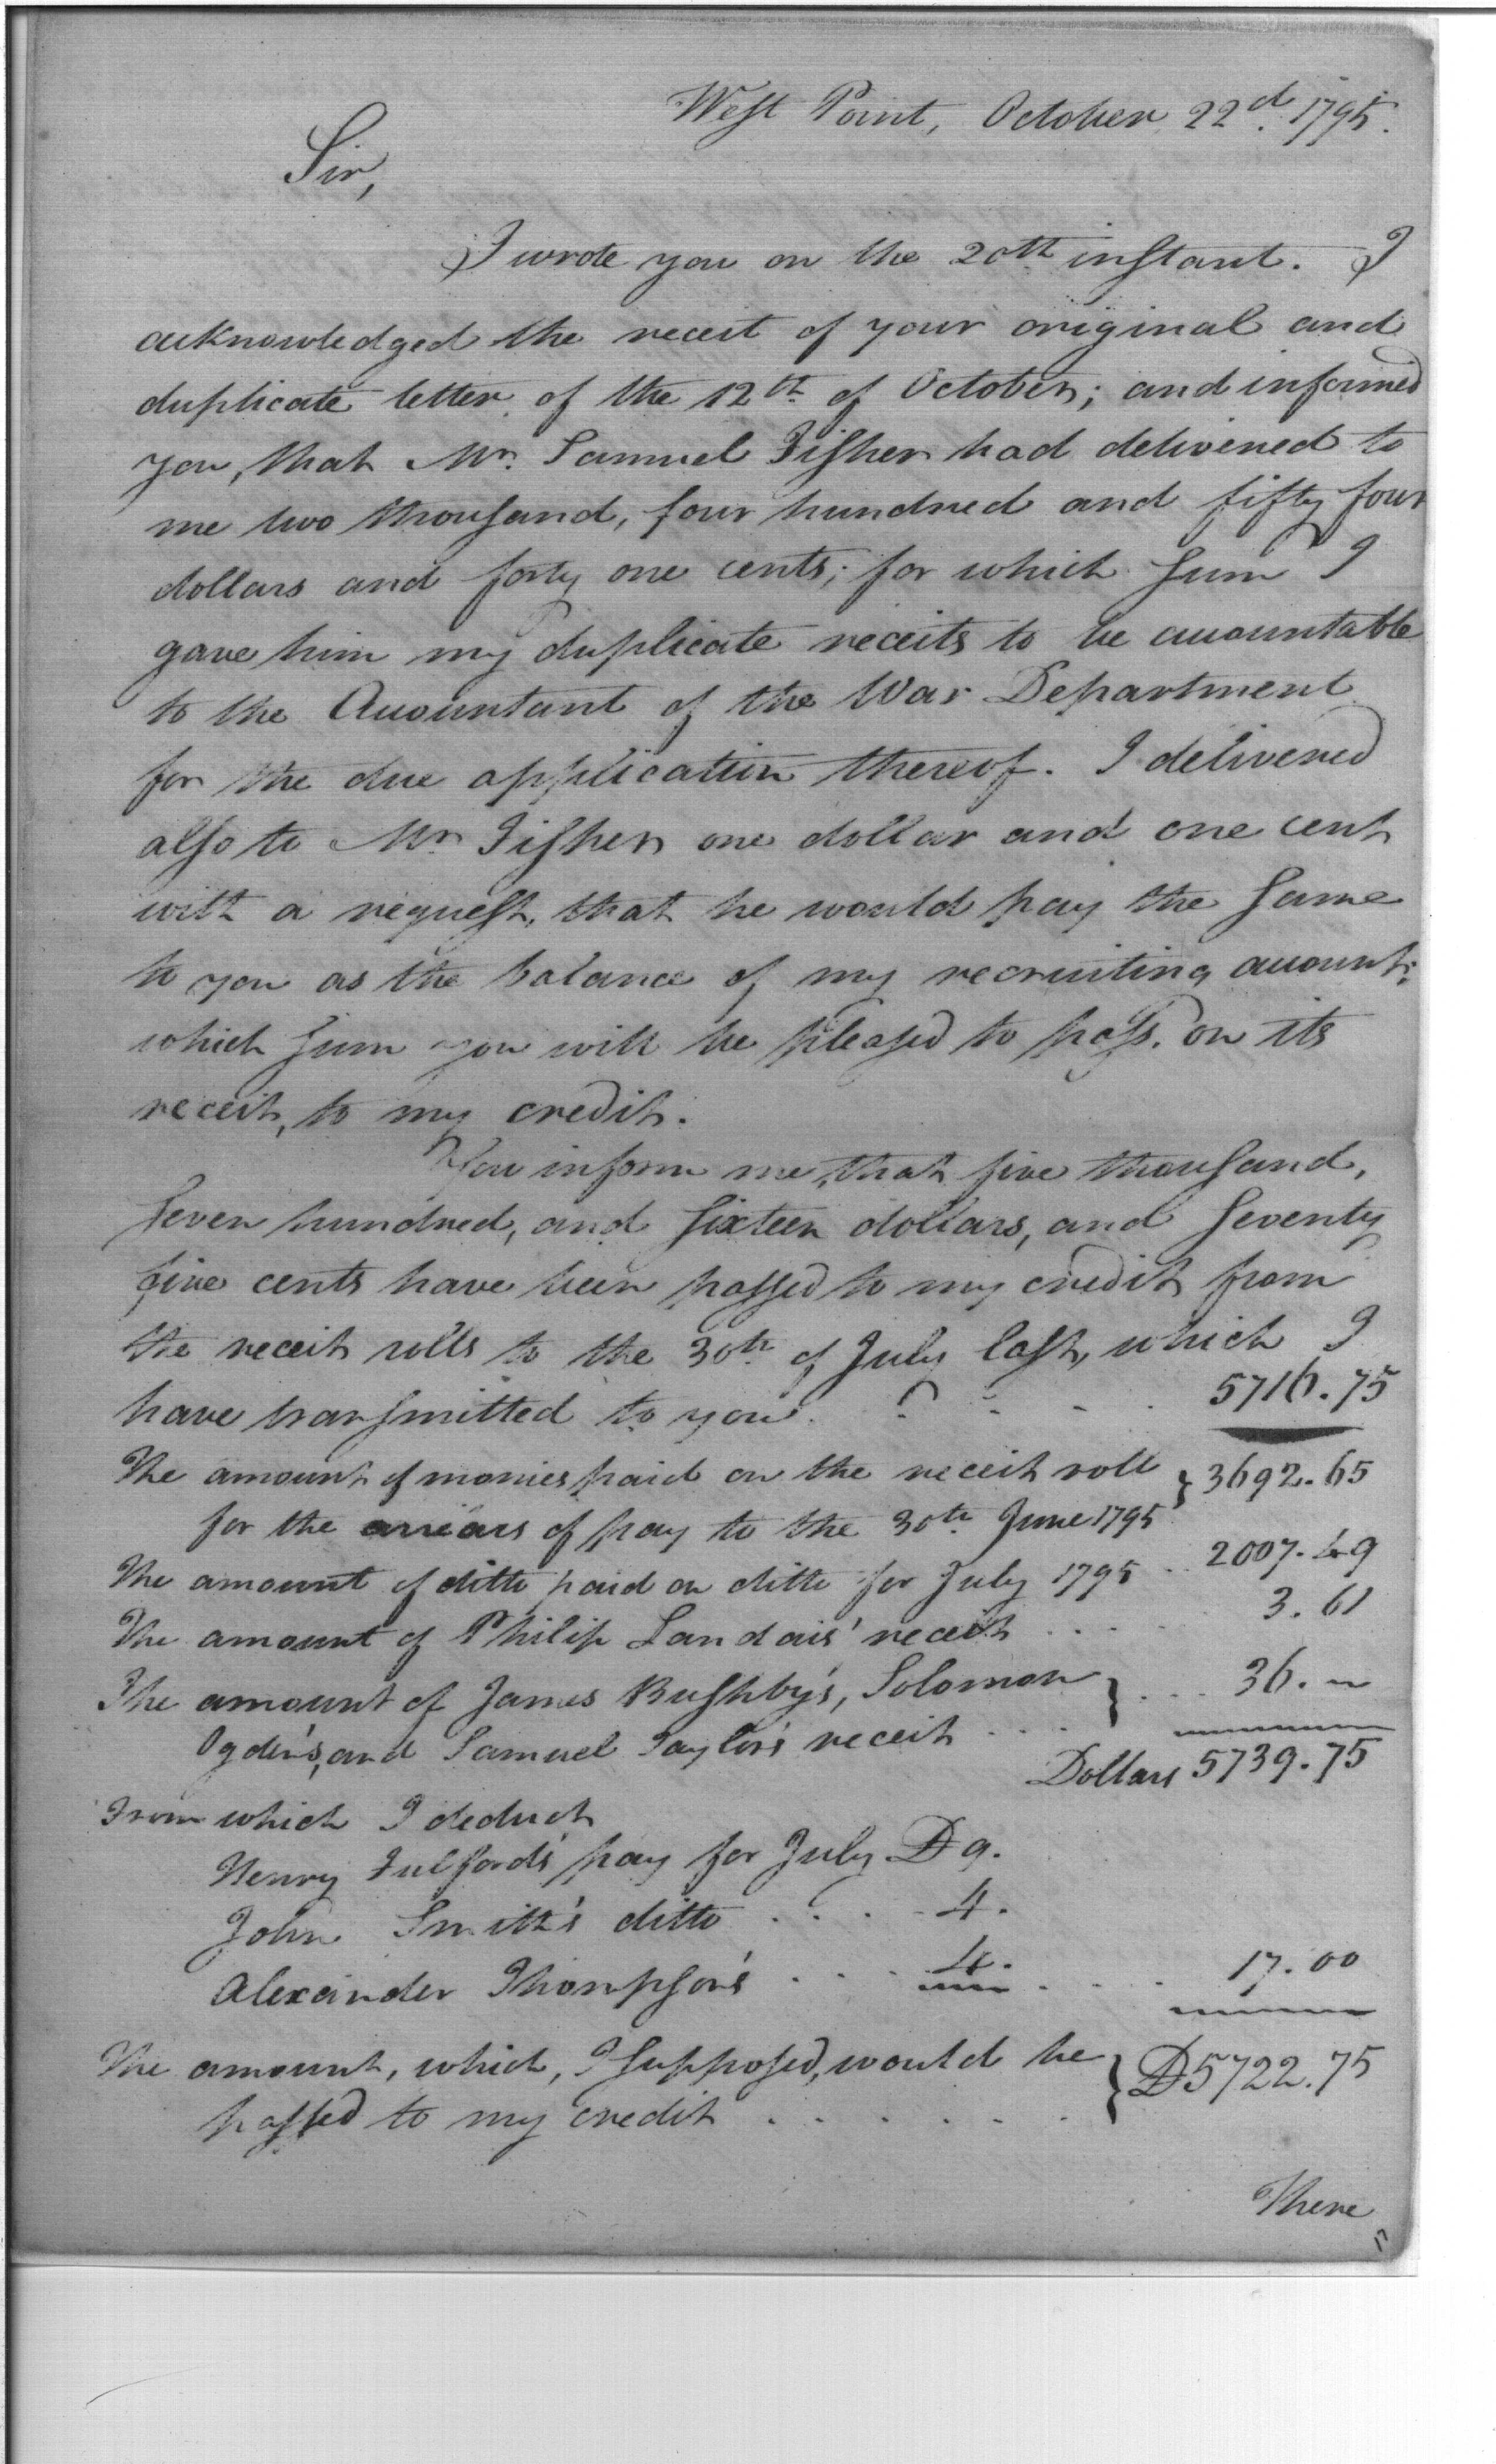 West Point, October 22d. 1795.
Sir,
I wrote you on the 20th instant. I
acknowledged the receit of your original and
duplicate letter of the 12th. of October; and informed
you, that Mr. Samuel Fisher had delivered to
me two thousand, four hundred and fifty four
dollars and forty one cents; for which sum I
gave him my duplicate receits to be accountable
to the Accountant of the War Department
for the due application thereof. I delivered
also to Mr. Fisher one dollar and one cent
with a request, that he would pay the same
to you as the balance of my recruiting account;
which sum you will be pleased to pass, on its
receit, to my credit.
You inform me, that five thousand,
seven hundred, and sixteen dollars, and seventy
five cents have been passed to my credit from
the receit rolls to the 30th. of July last, which I
have transmitted to you. . . . . 5716.75
The amount of monies paid on the receit roll } 3692.65
for the arrears of pay to the 30th. June 1795
The amount of ditto paid on ditto for July 1795 . . 2007.49
The amount of Philip Landais' receit . . . . 3.61
The amount of James Bushby's, Solomon } . . . 36.~
Ogden's, and Samuel Taylor's receit . . .
Dollars 5739.75
From which I deduct
Henry Fulford's pay for July D 9.
John Smith's ditto . . . . 4.
Alexander Thompson's . . . 4. . . . 17.00
The amount, which, I supposed, would be } D5722.75
passed to my credit . . . . . .
There